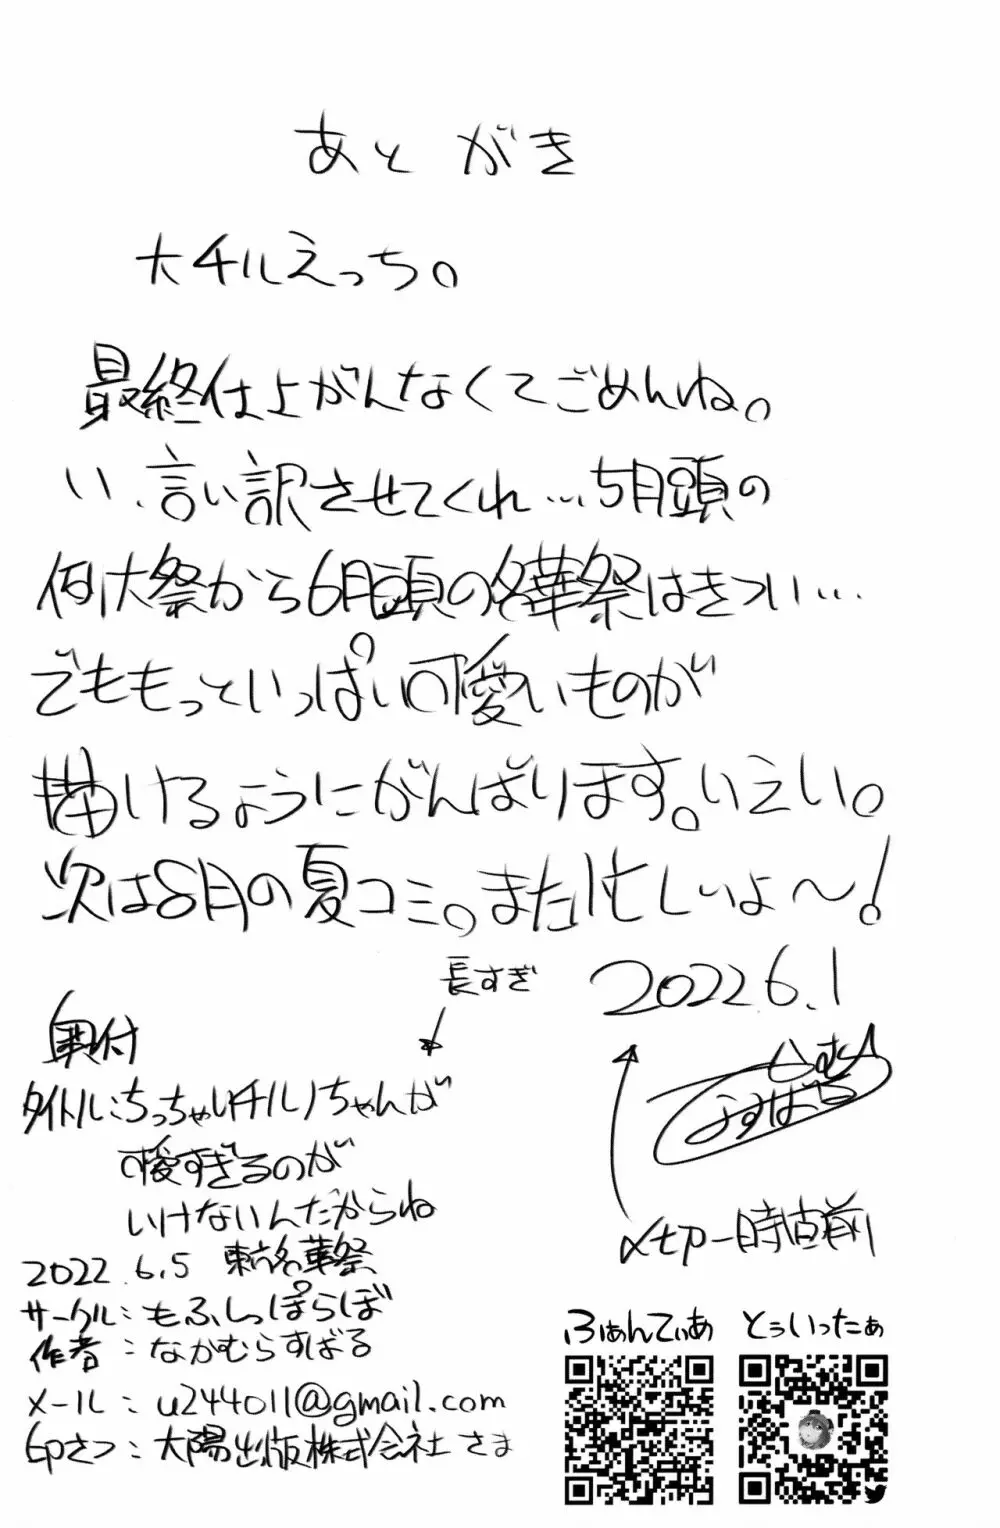 あとがき
大チルえっち。
最終仕上がんなくてごめんね。
い、言い訳させてくれ…5月頭の
例大祭から6月頭の名華祭はきつい…
でももっといっぱい可愛いものが
描けるようにがんばります。いえい。
次は8月の夏コミ。また忙しいよ〜!
2022 6.1
長すぎ
なかむら
すばる
〆切一時直前
奥付
タイトル:ちっちゃいチルノちゃんが
可愛すぎるのが
いけないんだからね
2022.6.5 東方名華祭
サークル:もふしっぽらぼ
作者:なかむらすばる
メール:u244011@gmail.com
印さつ:大陽出版株式会社さま
ふぁんてぃあ
とぅいったぁ